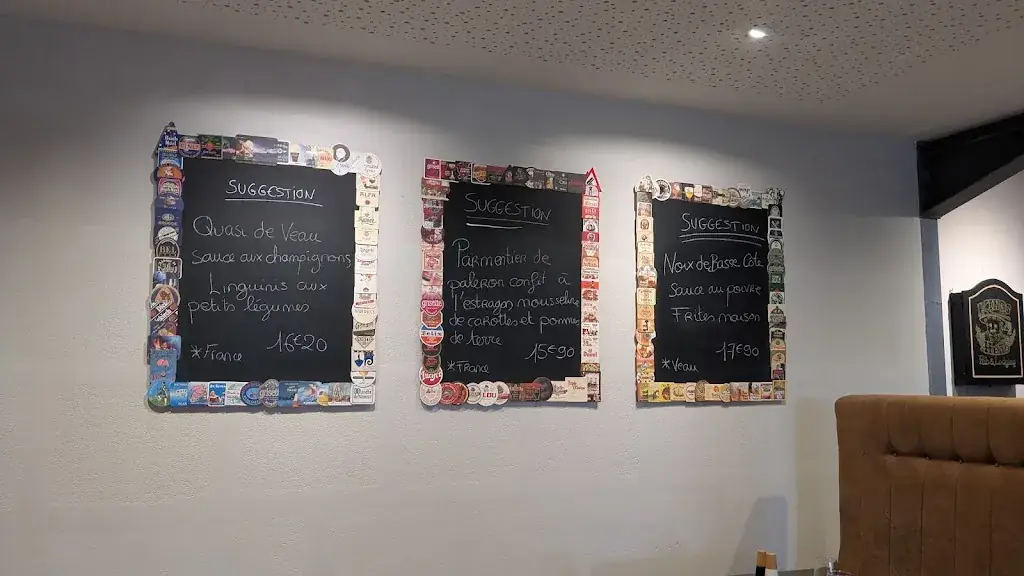 SUGGESTION
Quasi de Veau
sauce aux champignons,
Linguinis aux
petits légumes
16€20
*France
SUGGESTION
Parmentier de
paleron confit à
l'estragon mousseline
de carottes et pomme
de terre
15€90
*France
SUGGESTION
Noix de Basse Côte
Sauce au poivre
Frites maison
17€90
*Veau